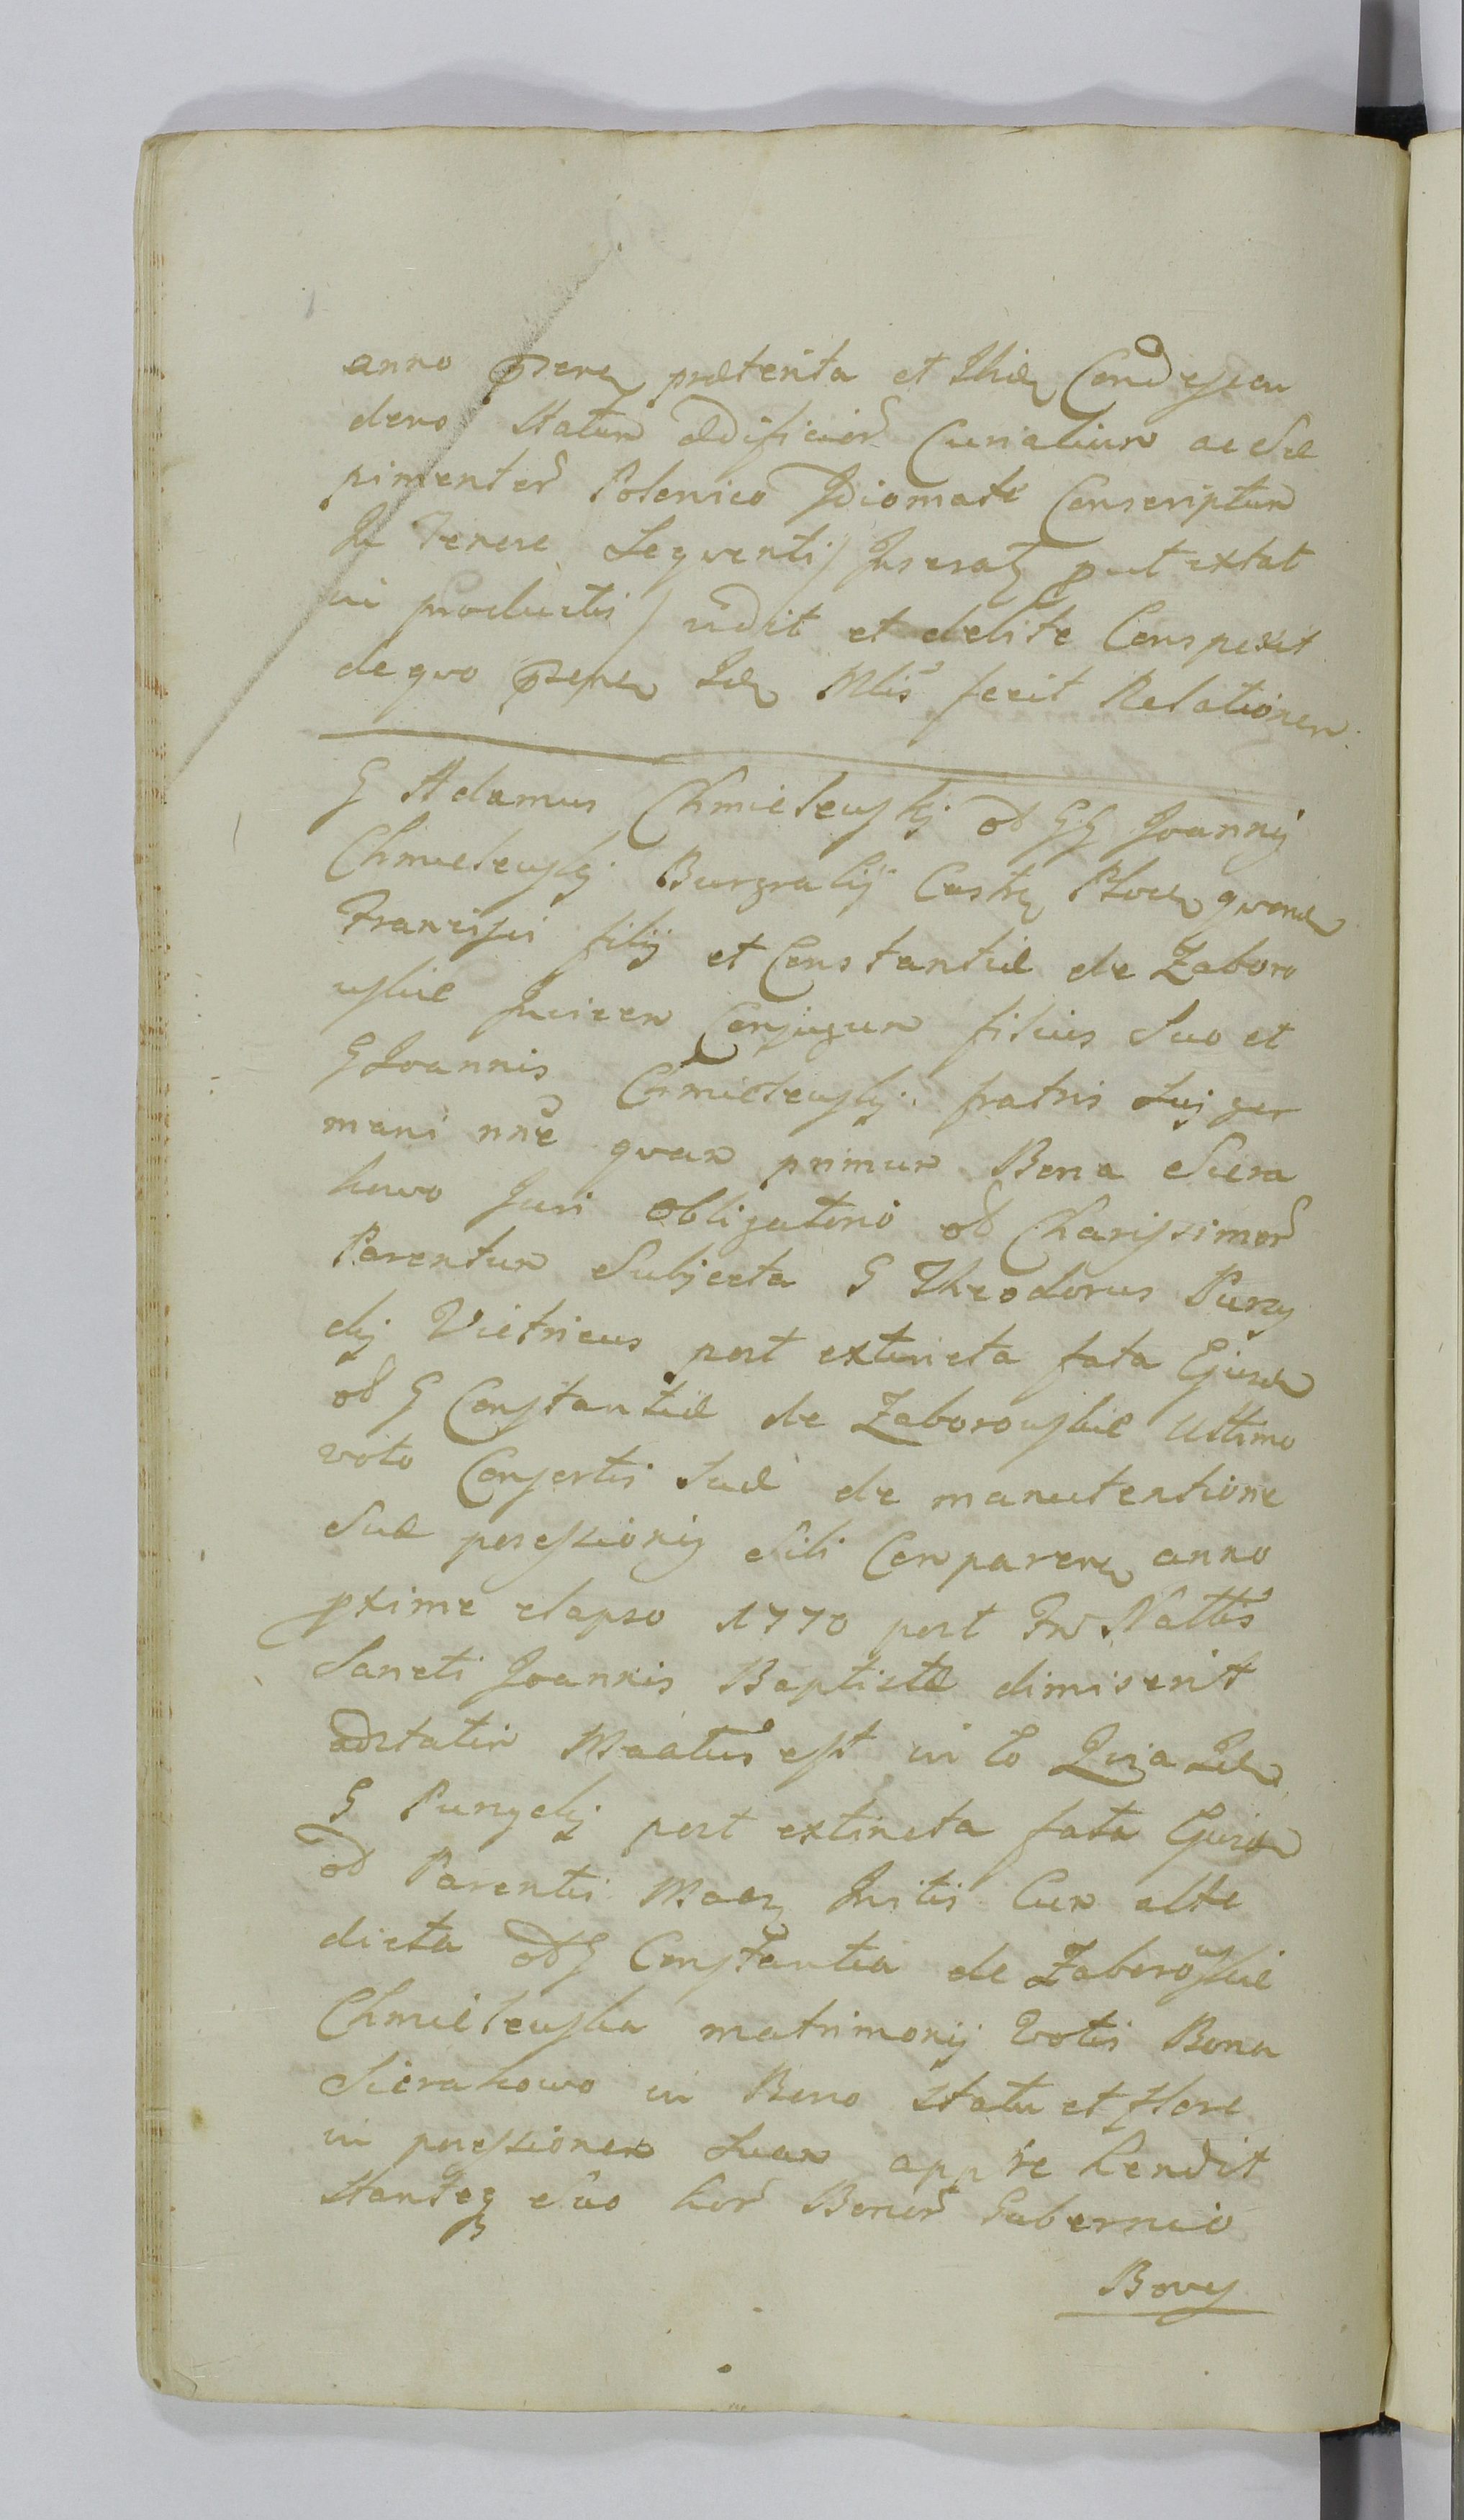 anno pręterita et Condescen
dens Statum ædificior Curialium ac Sæ
pimentor Polonico Idiomate Conscriptum
In Tenore Sequenti / Inserat put extat
in productis / vidit et debite Conspexit
de quo Mlis fecit Relationem
G Adamus Chmielewskj od GG Joannis
Chmielewskj Burgrabij Castr Ploc quond
Francisci filij et Constantiæ de Zaboro
wskie Invicem Conjugum filius Suo et
G Joannis Chmielewskj fratris Sui ger
mani nne quam primum Bona Siera
kowo Juri obligatorio od Charissimor
Parentum Subjecta G Theodorus Purzy
ckj Vitricus post extincta fata Ejusd
od G Constantiæ de Zaborowskie Ultimo
voto Consortis Suæ de manutentione
Suæ possessionis Sibi Comparen anno
pxime elapso 1770 post Fm Nattis
Sancti Joannis Baptistæ dimiserit
adstatim est in eo Quia Id
G Purzyckj post extincta fata Ejusd
od Parentis Initis Cum alte
dicta od G Constantia de Zaborowskie
Chmielewska matrimonij Votis Bona
Sierakowo in Bono Statu et flore
in possessionem Suam apprehendit
Stanteq Suo hor Bonor Gubernio
Bovy